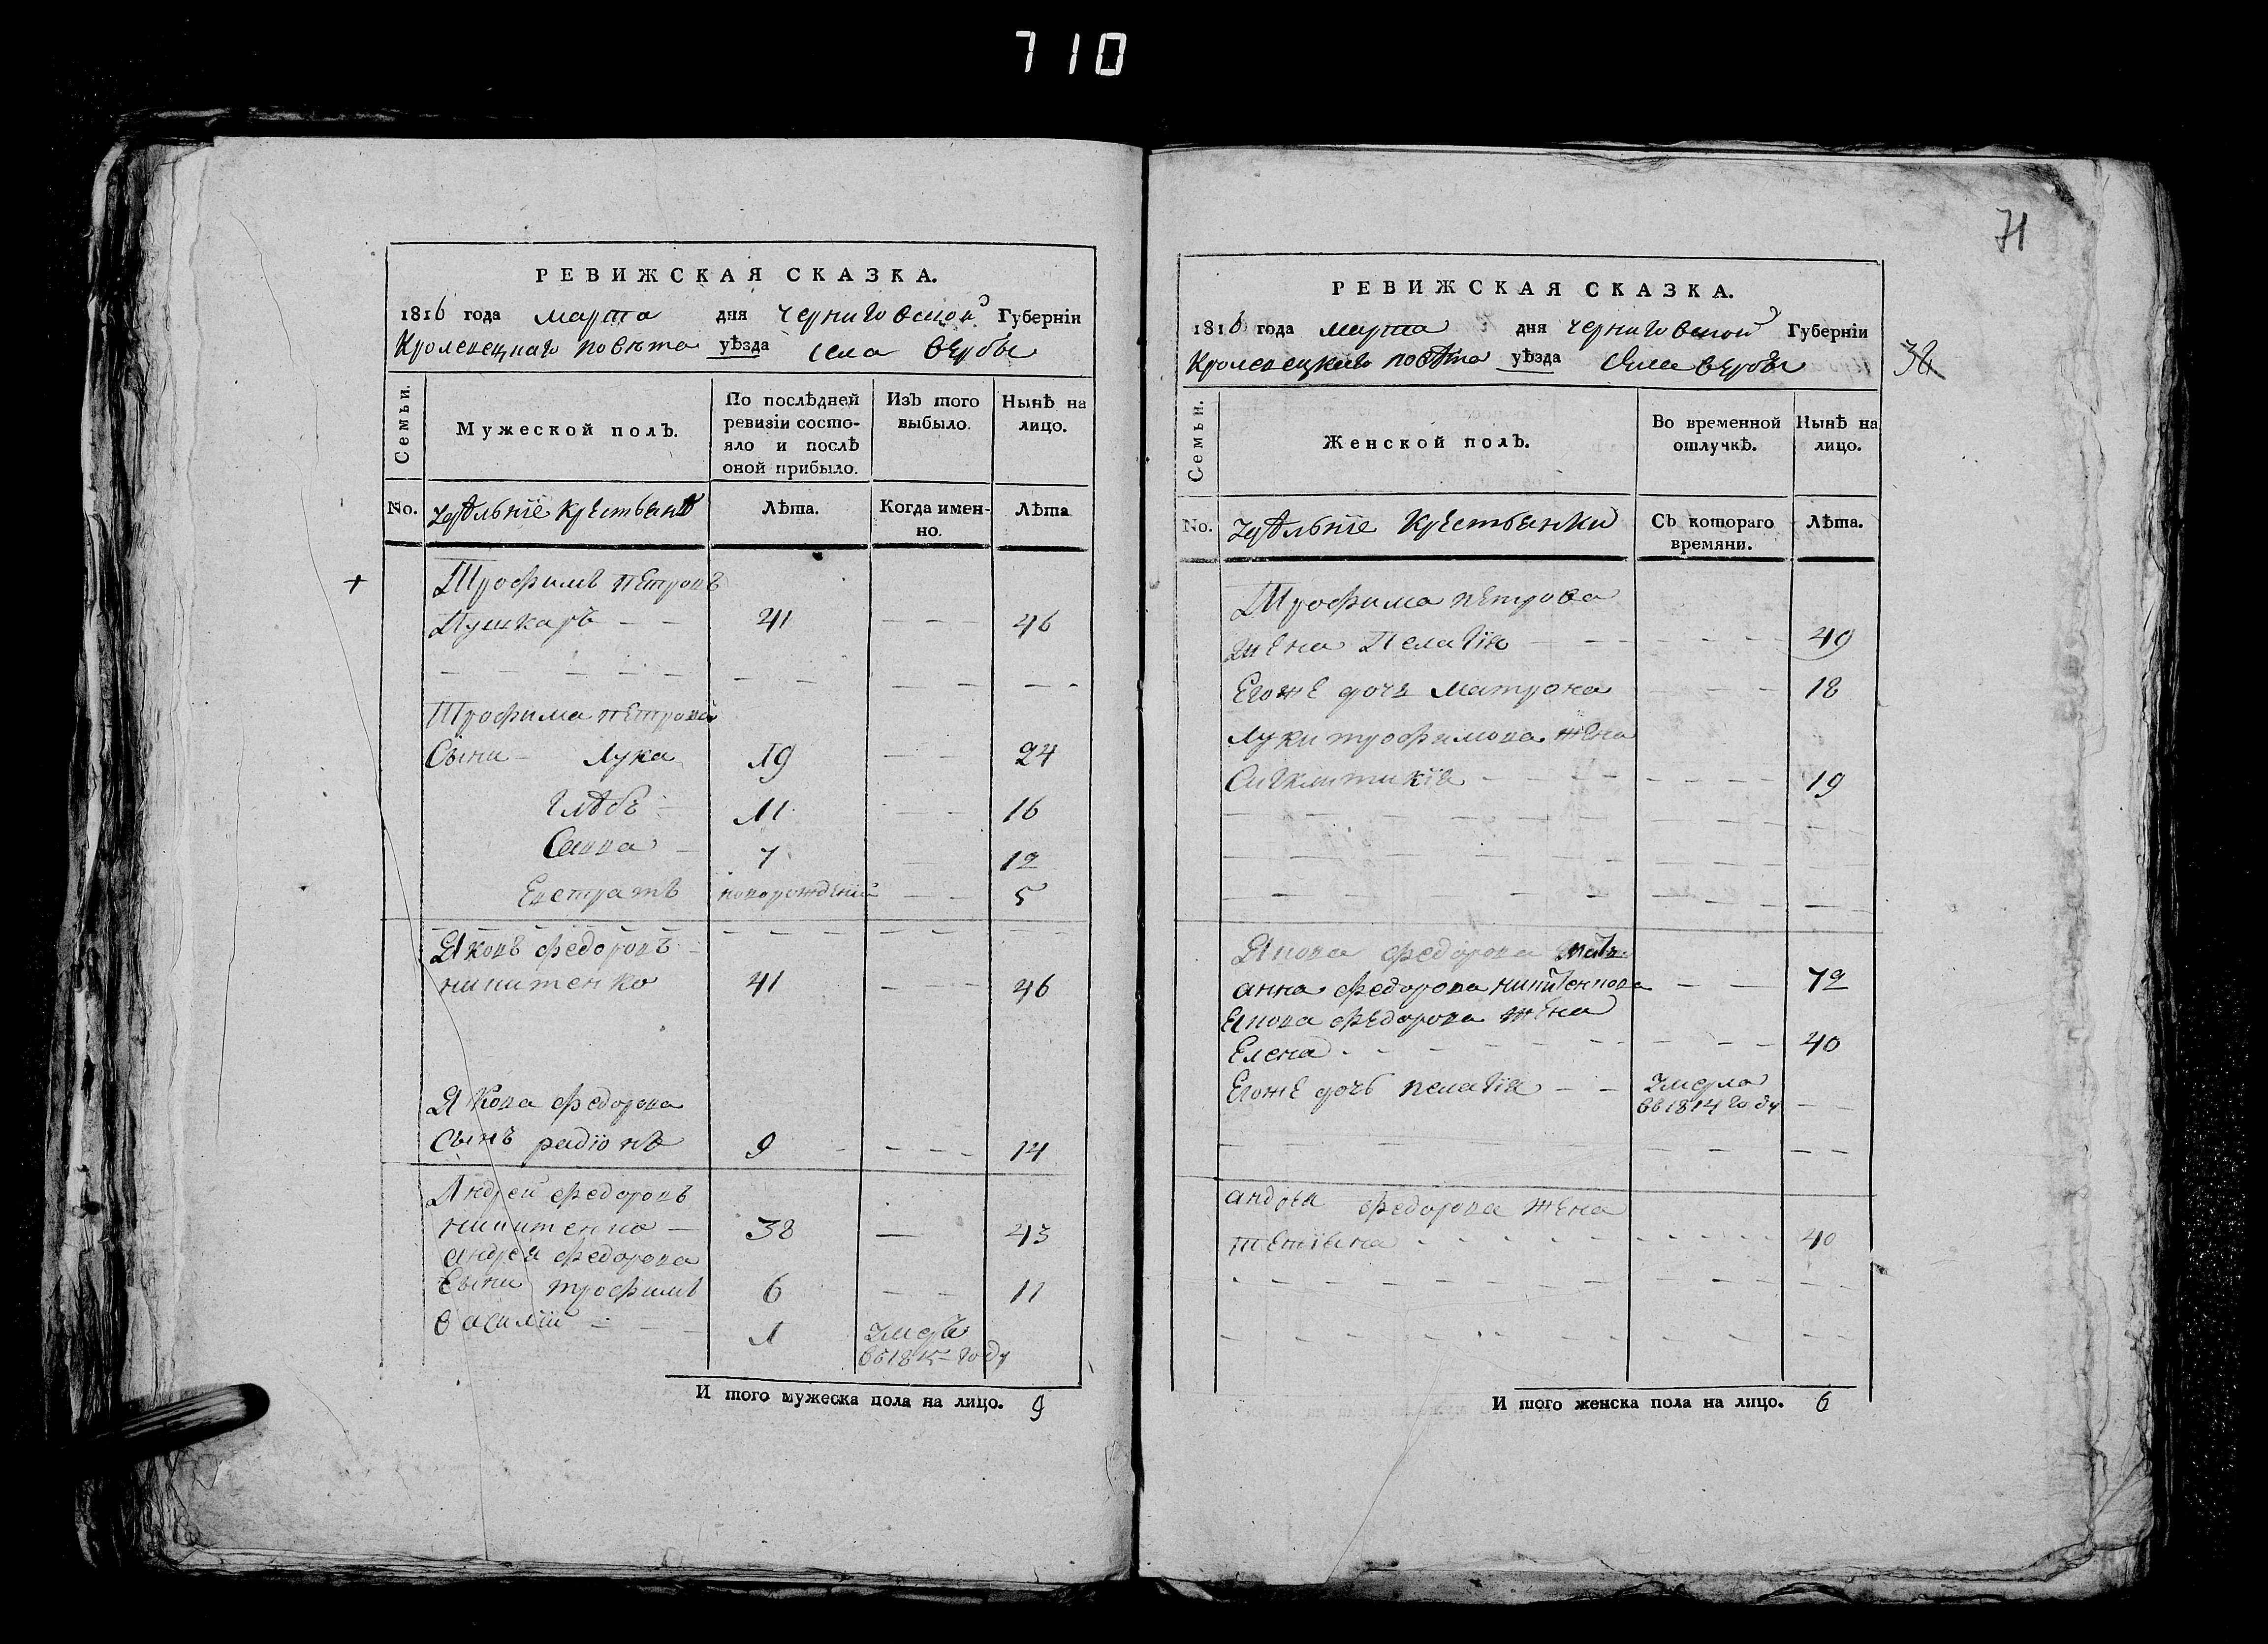 710
РЕВИЖСКАЯ СКАЗКА.
1816 года марта дня черниговской Губерніи
Кролевецкаго повѣта уѣзда села вербы
Семьи.
Мужеской полъ.
По послѣдней ревизіи состо-
яло и послѣ
оной прибыло.
Изъ того
выбыло.
Нынѣ на
лицо.
No.
Лѣта.
Когда имен-
но.
Лѣта
Трофимъ петровъ
Пушкаръ - - 41 - - 46
Трофима петрова
Сыни - Лука 19 - - 24
глѣбъ - 11 - - 16
Савва - 7 - 12
Евстратъ новорожденій - - 5
Яковъ федоровъ
никитенко 41 - - - 46
Якова федорова
Сынъ радіонъ 9 - - - - 14
Андрей федоровъ
никитенко - 38 - 43
андрея федорова
Сыни трофимъ 6 - - 11
василій - - - 1 умеръ
въ 1815 году
И того мужеска пола на лицо. 9
71
РЕВИЖСКАЯ СКАЗКА.
1816 года марта дня черниговской Губерніи
Кролевецкаго повѣта уѣзда села вербы
38
Семьи.
Женской полъ.
Во временной
отлучкѣ.
Нынѣ на
лицо.
No.
крестьянки
Съ котораго
времяни.
Лѣта.
Трофима петрова
жена Пелагія - - - - - 40
Егоже дочь матрона - - - 18
Луки трофимова жена
Сигклитикія - - - - - - - 19
Якова федорова мать
анна федорова никитенкова - - 72
Якова федорова жена
Елена - - - - - - - - - 40
Егоже дочь пелагія - - умерла
въ 1814 году - -
андрея федорова жена
- - - - - - - - - - 40
И того женска пола на лицо. 6